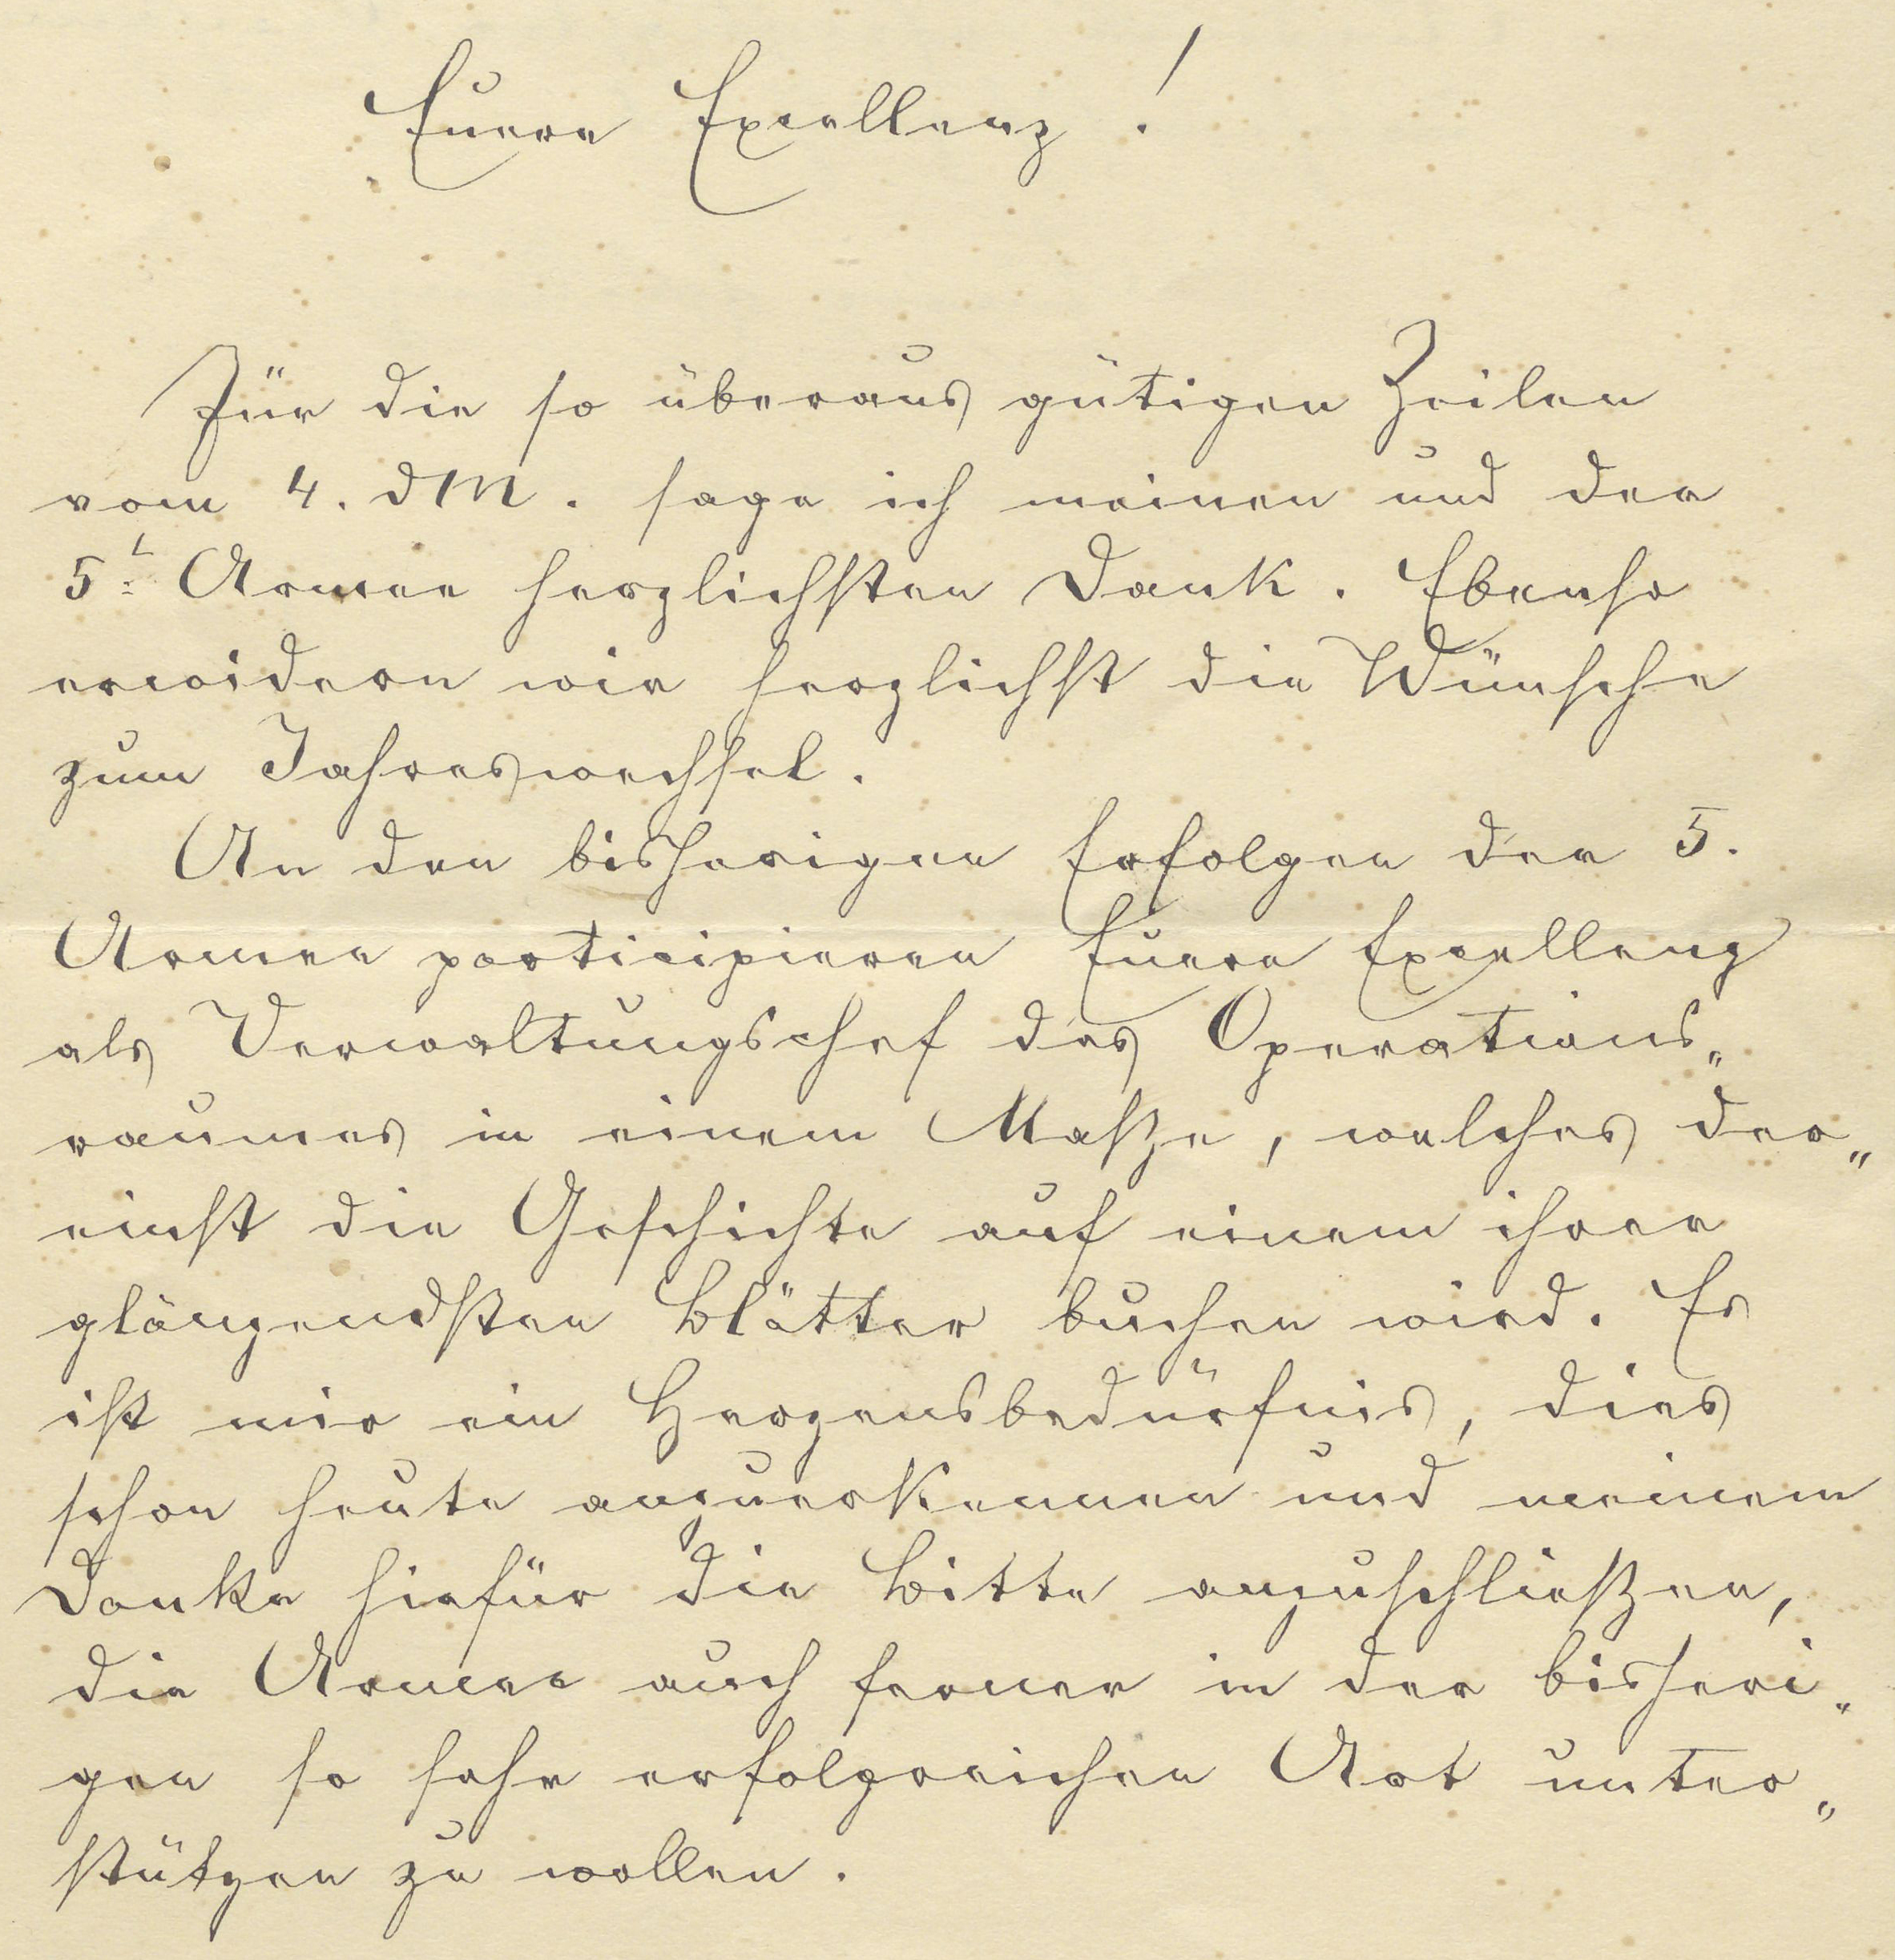 Euere Excellenz!
Für die so überaus gütigen Zeilen
vom 4. dM. sage ich meinen und der
5t. Armee herzlichsten Dank. Ebenso
erwidern wir herzlichst die Wünsche
zum Jahreswechsel.
An den bisherigen Erfolgen der 5.
Armee participieren Euere Excellenz
als Verwaltungschef des Operations„
raumes in einem Maße, welches der„
einst die Geschichte auf einem ihrer
glänzendsten Blätter buchen wird. Es
ist mir ein Herzensbedürfnis, dies
schon heute anzuerkennen und meinem
Danke hiefür die Bitte anzuschließen,
die Armee auch ferner in der bisheri„
gen so sehr erfolgreichen Art unter„
stützen zu wollen.